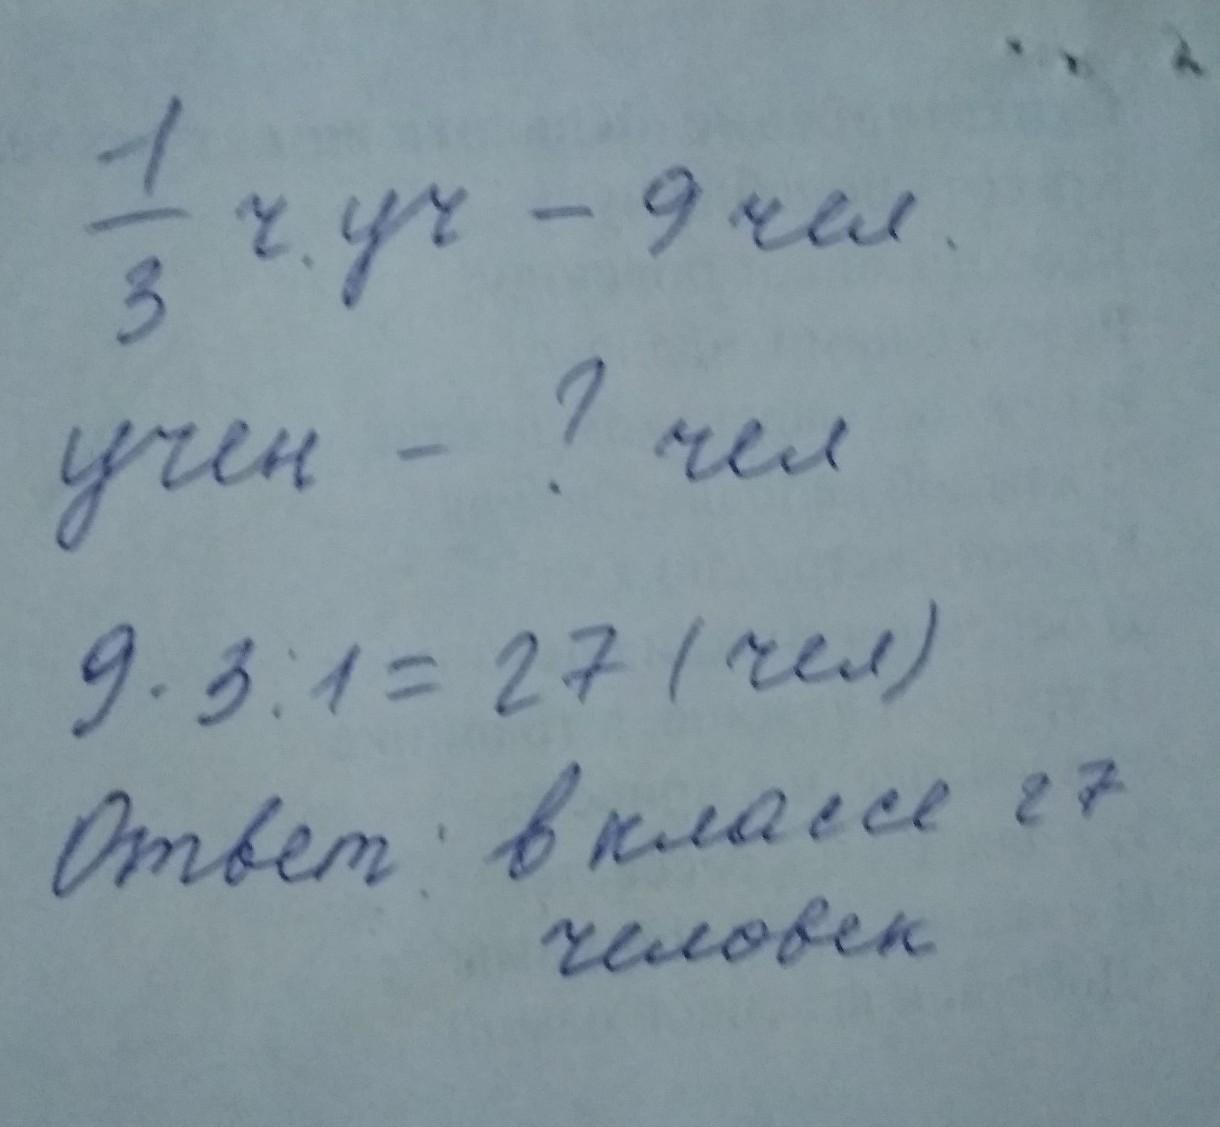 1/3 ч. уч - 9 чел.
учен - ? чел
9 · 3 : 1 = 27 (чел)
Ответ: в классе 27
человек